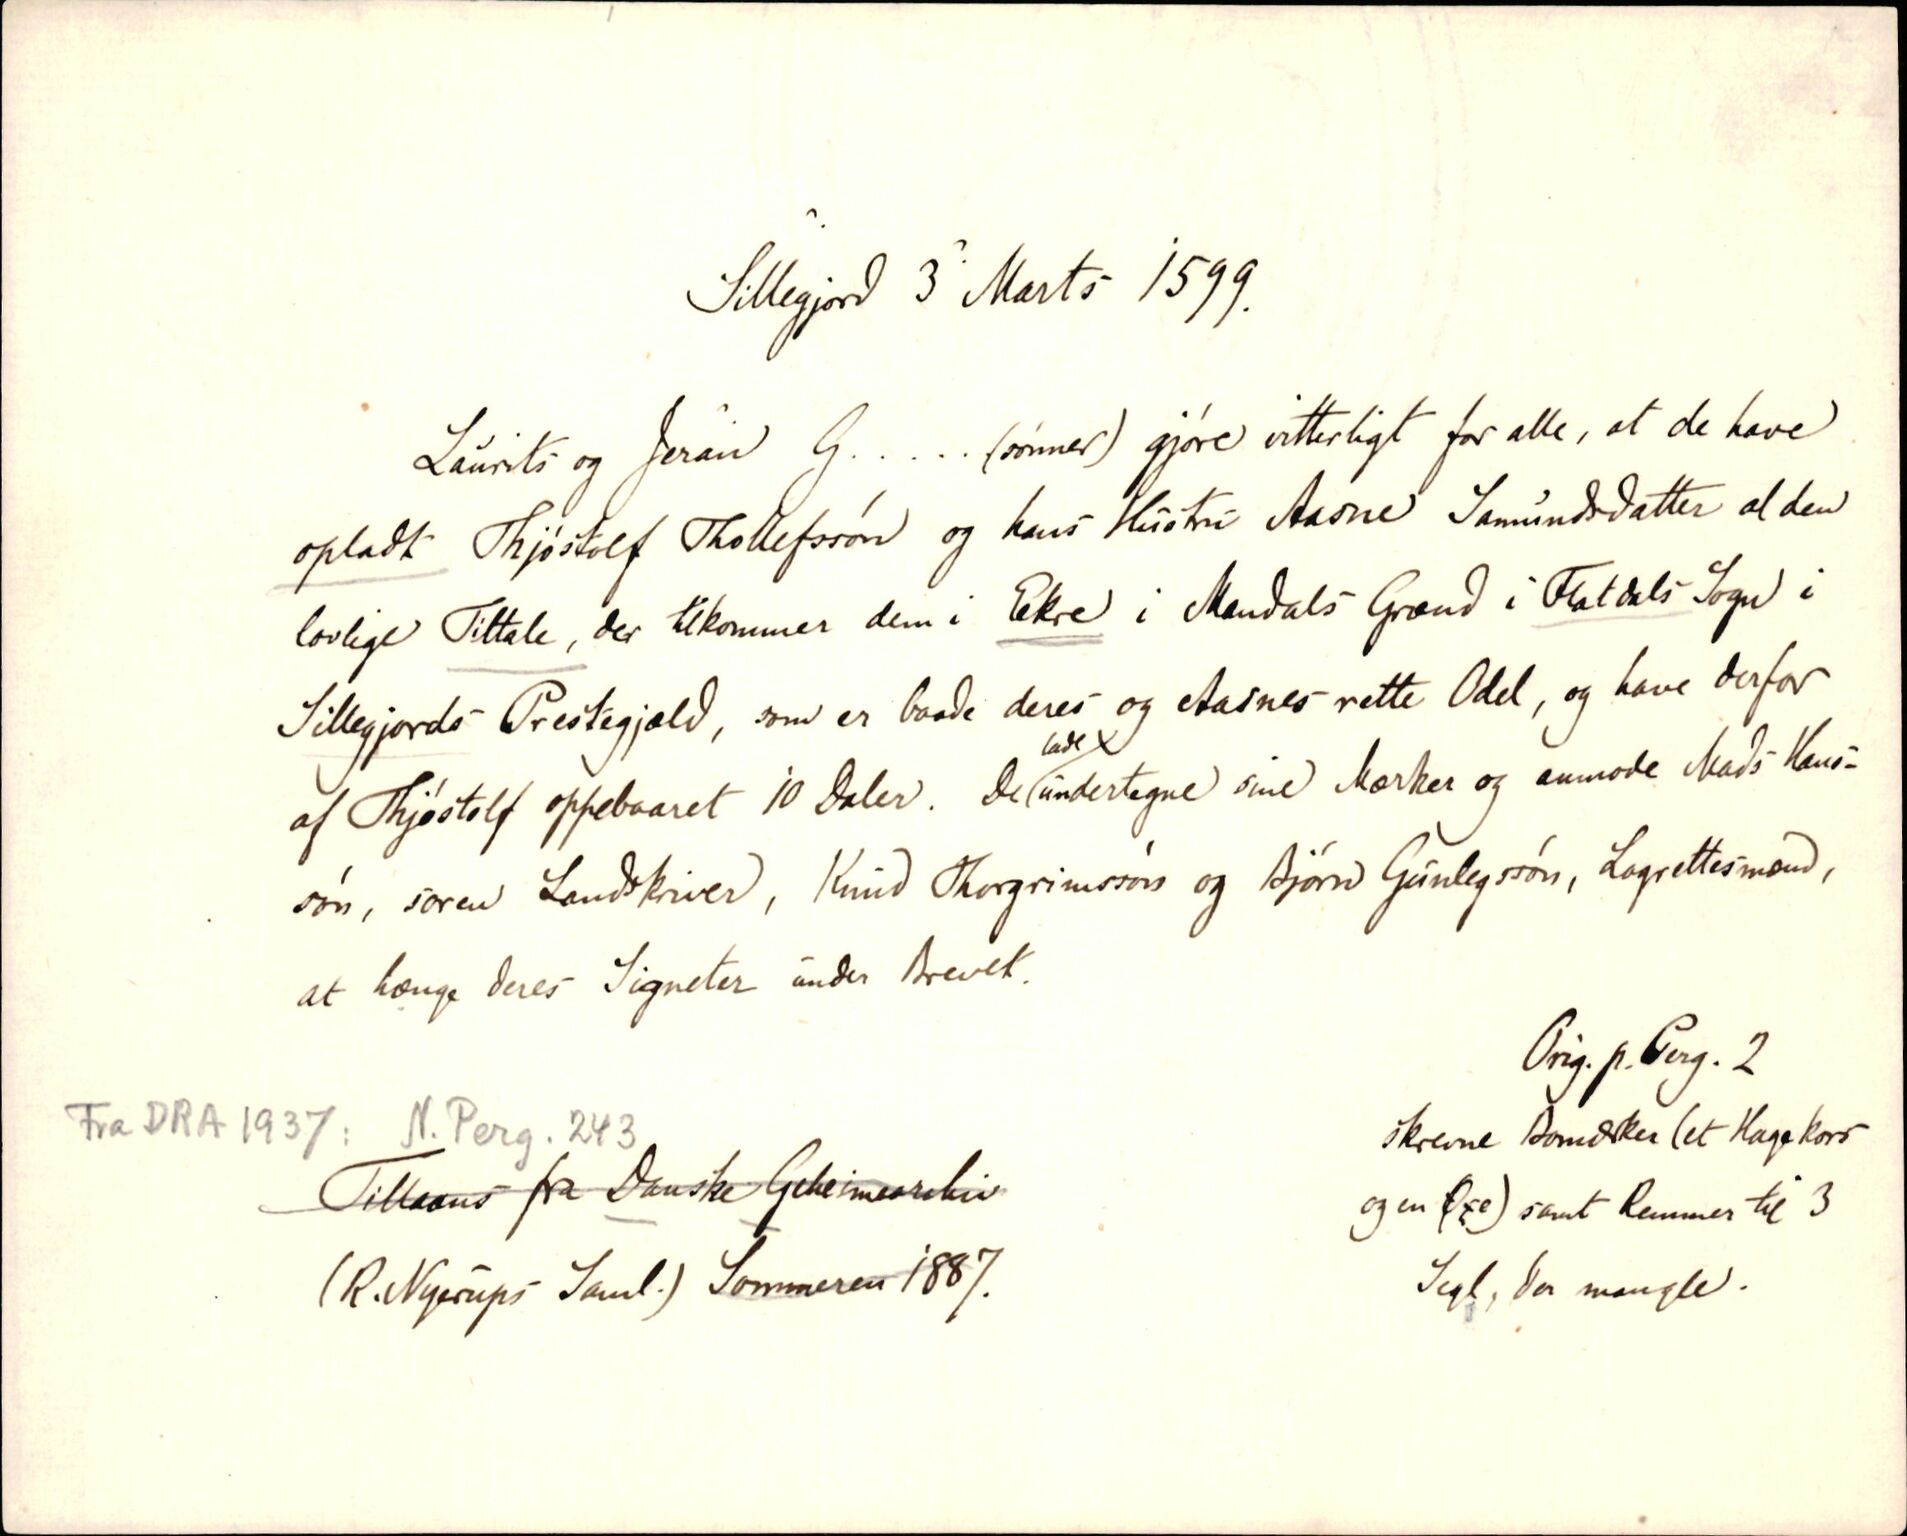 Sillegjord 3 Marts 1599.
Laurits og Jeran G. . . . . (sønner) gjøre vitterligt for alle, at de have
opladt Thjøstolf Thollefssøn og hans Hustru Aasne Samundsdatter al den
lovlige Tiltale, der tilkommer dem i Eekre i Mandals Grænd i Flatdals Sogn i
Sillegjords Prestegjæld, som er baade deres og Aasnes rette Odel, og have derfor
af Thjøstolf oppebaaret 10 Daler. De (undertegne sine Mærker og anmode Mads Hans-
lade
søn, soren Landskriver, Knud Thorgrimssøn og Bjørn Gunlegssøn, Lagrettesmænd,
at hænge deres Signeter under Brevet.
Orig. p. Perg. 2
skrevne Bomærker (et Hagekors
og en Øxe) samt Remmer til 3
Segl, der mangle.
Fra DRA 1937: N. Perg. 243
Tillaans fra Danske Geheimearchiv
(R. Nyerups Saml.) Sommeren 1887.